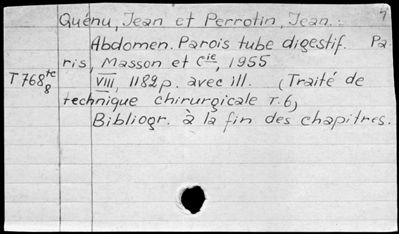 4
Quénu, Jean et Perrotin, Jean.:
Abdomen. Parois tube digestif. Pa
ris, Masson et Cie, 1955
T768te8 VIII, 1182p. avec ill. (Traité de
technique chirurgicale T.6)
Bibliogr. à la fin des chapitres.